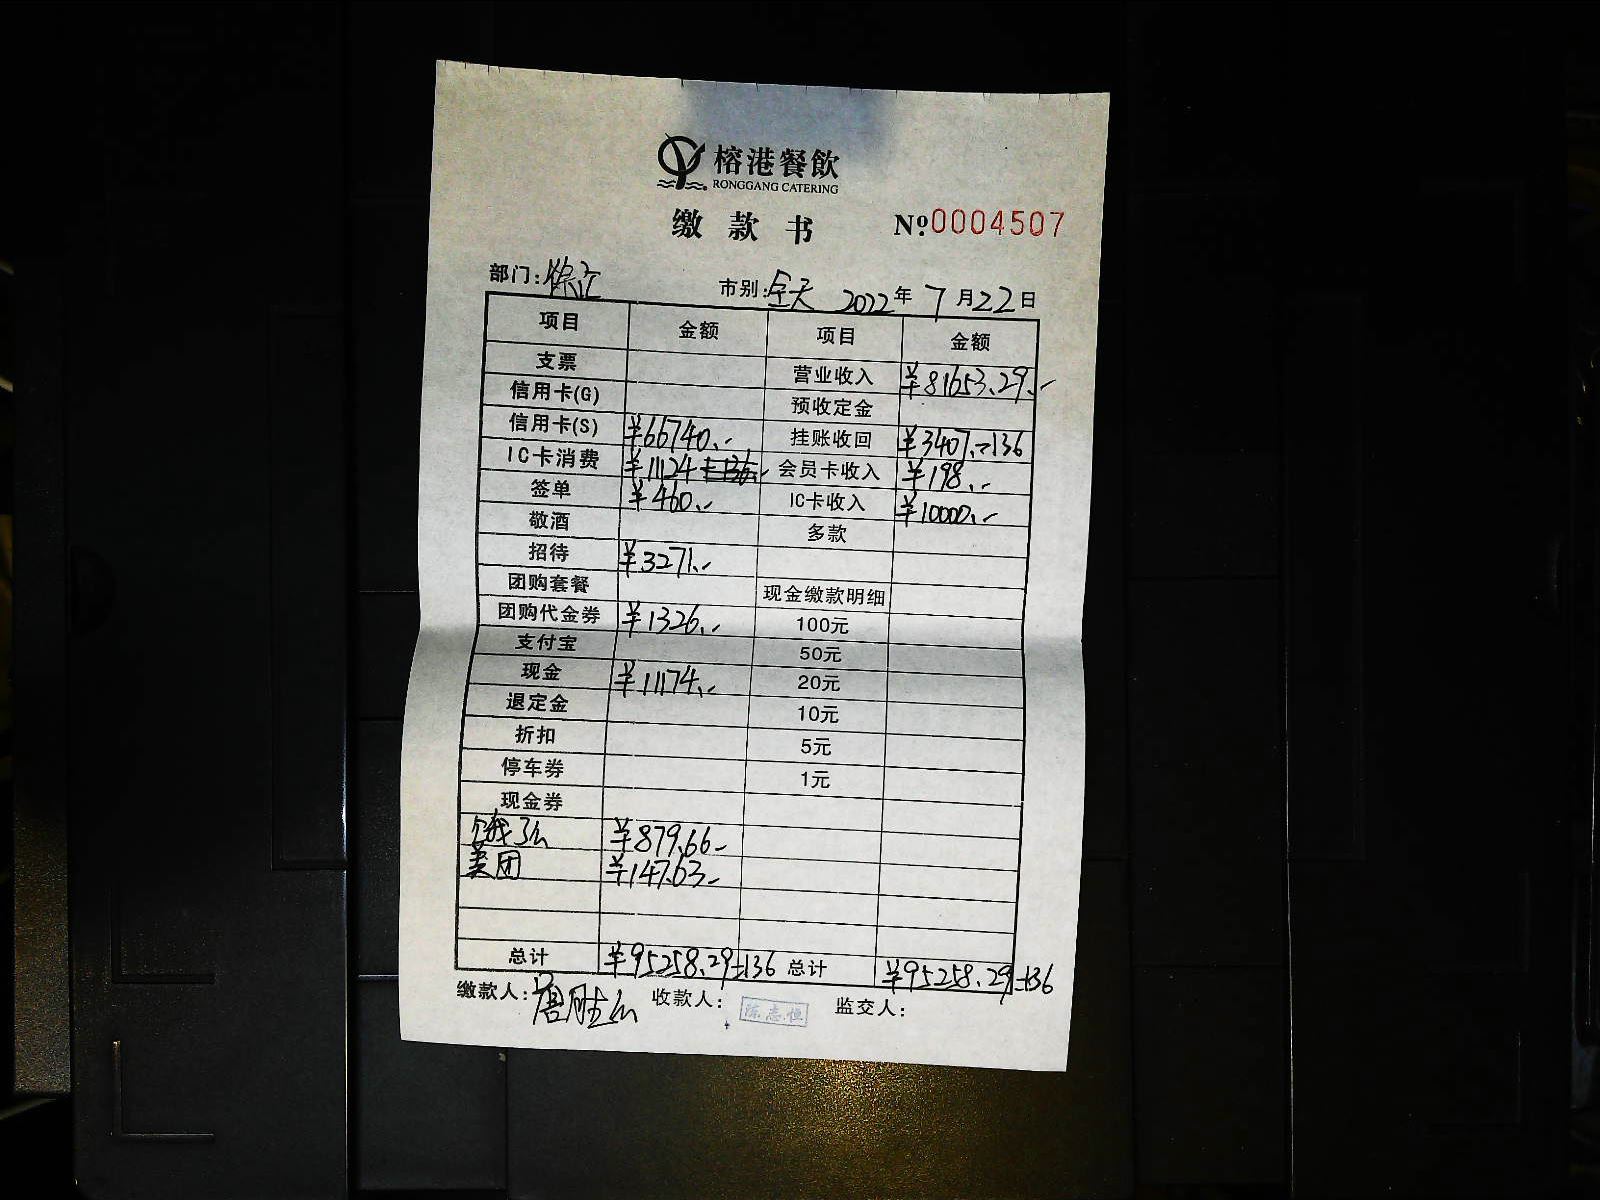 榕港餐飲
RONGGANG CATERING
缴款书 №0004507
部门: 市别:全天 2022年7月22日
项目 金额 项目 金额
支票 营业收入 ¥81653.29.-
信用卡(G) 预收定金
信用卡(S) ¥66740.- 挂账收回 ¥3407.-136
IC卡消费 ¥11124 会员卡收入 ¥198.-
签单 ¥460.- IC卡收入 ¥10000.-
敬酒 多款
招待 ¥3271.-
团购套餐 现金缴款明细
团购代金券 ¥1326.- 100元
支付宝 50元
现金 ¥11174.- 20元
退定金 10元
折扣 5元
停车券 1元
现金券
饿了么 ¥879.66-
美团 ¥147.63-
总计 ¥95258.29-136 总计 ¥95258.29-136
缴款人: 收款人:陈志恒 监交人: